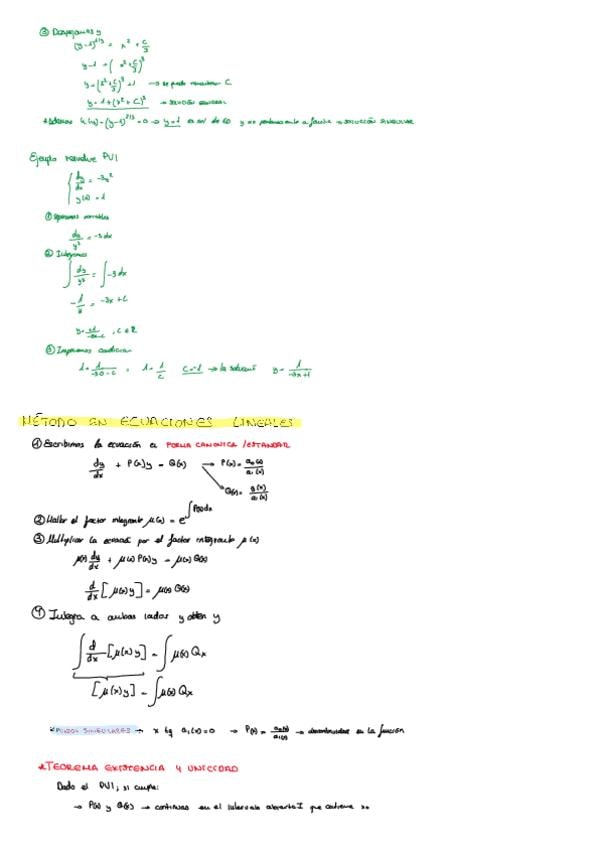 ③ Despejamos y
(y-1)^{1/3} = x² + C/3
y-1 = (x² + C/3)³
y = (x² + C/3)³ + 1 → se puede renombrar C
y = 1 + (x² + C)³ → solución general
h(y) = (y-1)^{2/3} = 0 → y = 1 es sol de ED y no pertenece a familia → SOLUCIÓN SINGULAR
Ejemplo resolver PVI
dy/dx = -3y²
y(0) = 1
① Separamos variables
dy/y² = -3dx
② Integramos
∫ dy/y² = ∫ -3dx
-1/y = -3x + C
, C ∈ R
③ Imponemos condición
C = -1 → la solución
MÉTODO EN ECUACIONES LINEALES
① Escribimos la ecuación en FORMA CANONICA / ESTANDAR
dy/dx + P(x)y = Q(x) → P(x) = a₀(x)/a₁(x)
Q(x) = g(x)/a₁(x)
② Hallar el factor integrante μ(x) = e^{∫P(x)dx}
③ Multiplicar la ecuación por el factor integrante μ(x)
μ(x) dy/dx + μ(x) P(x)y = μ(x) Q(x)
d/dx [μ(x)y] = μ(x) Q(x)
④ Integra a ambos lados y obten y
∫ d/dx [μ(x)y] = ∫ μ(x) Qx
[μ(x)y] = ∫ μ(x) Qx
* PUNTOS SINGULARES → x tq a₁(x) = 0 → P(x) = a₀(x)/a₁(x) → discontinuidad en la función
* TEOREMA EXISTENCIA Y UNICIDAD
Dado el PVI, si cumple:
→ P(x) y Q(x) → continuas en el intervalo abierto I que contiene x₀